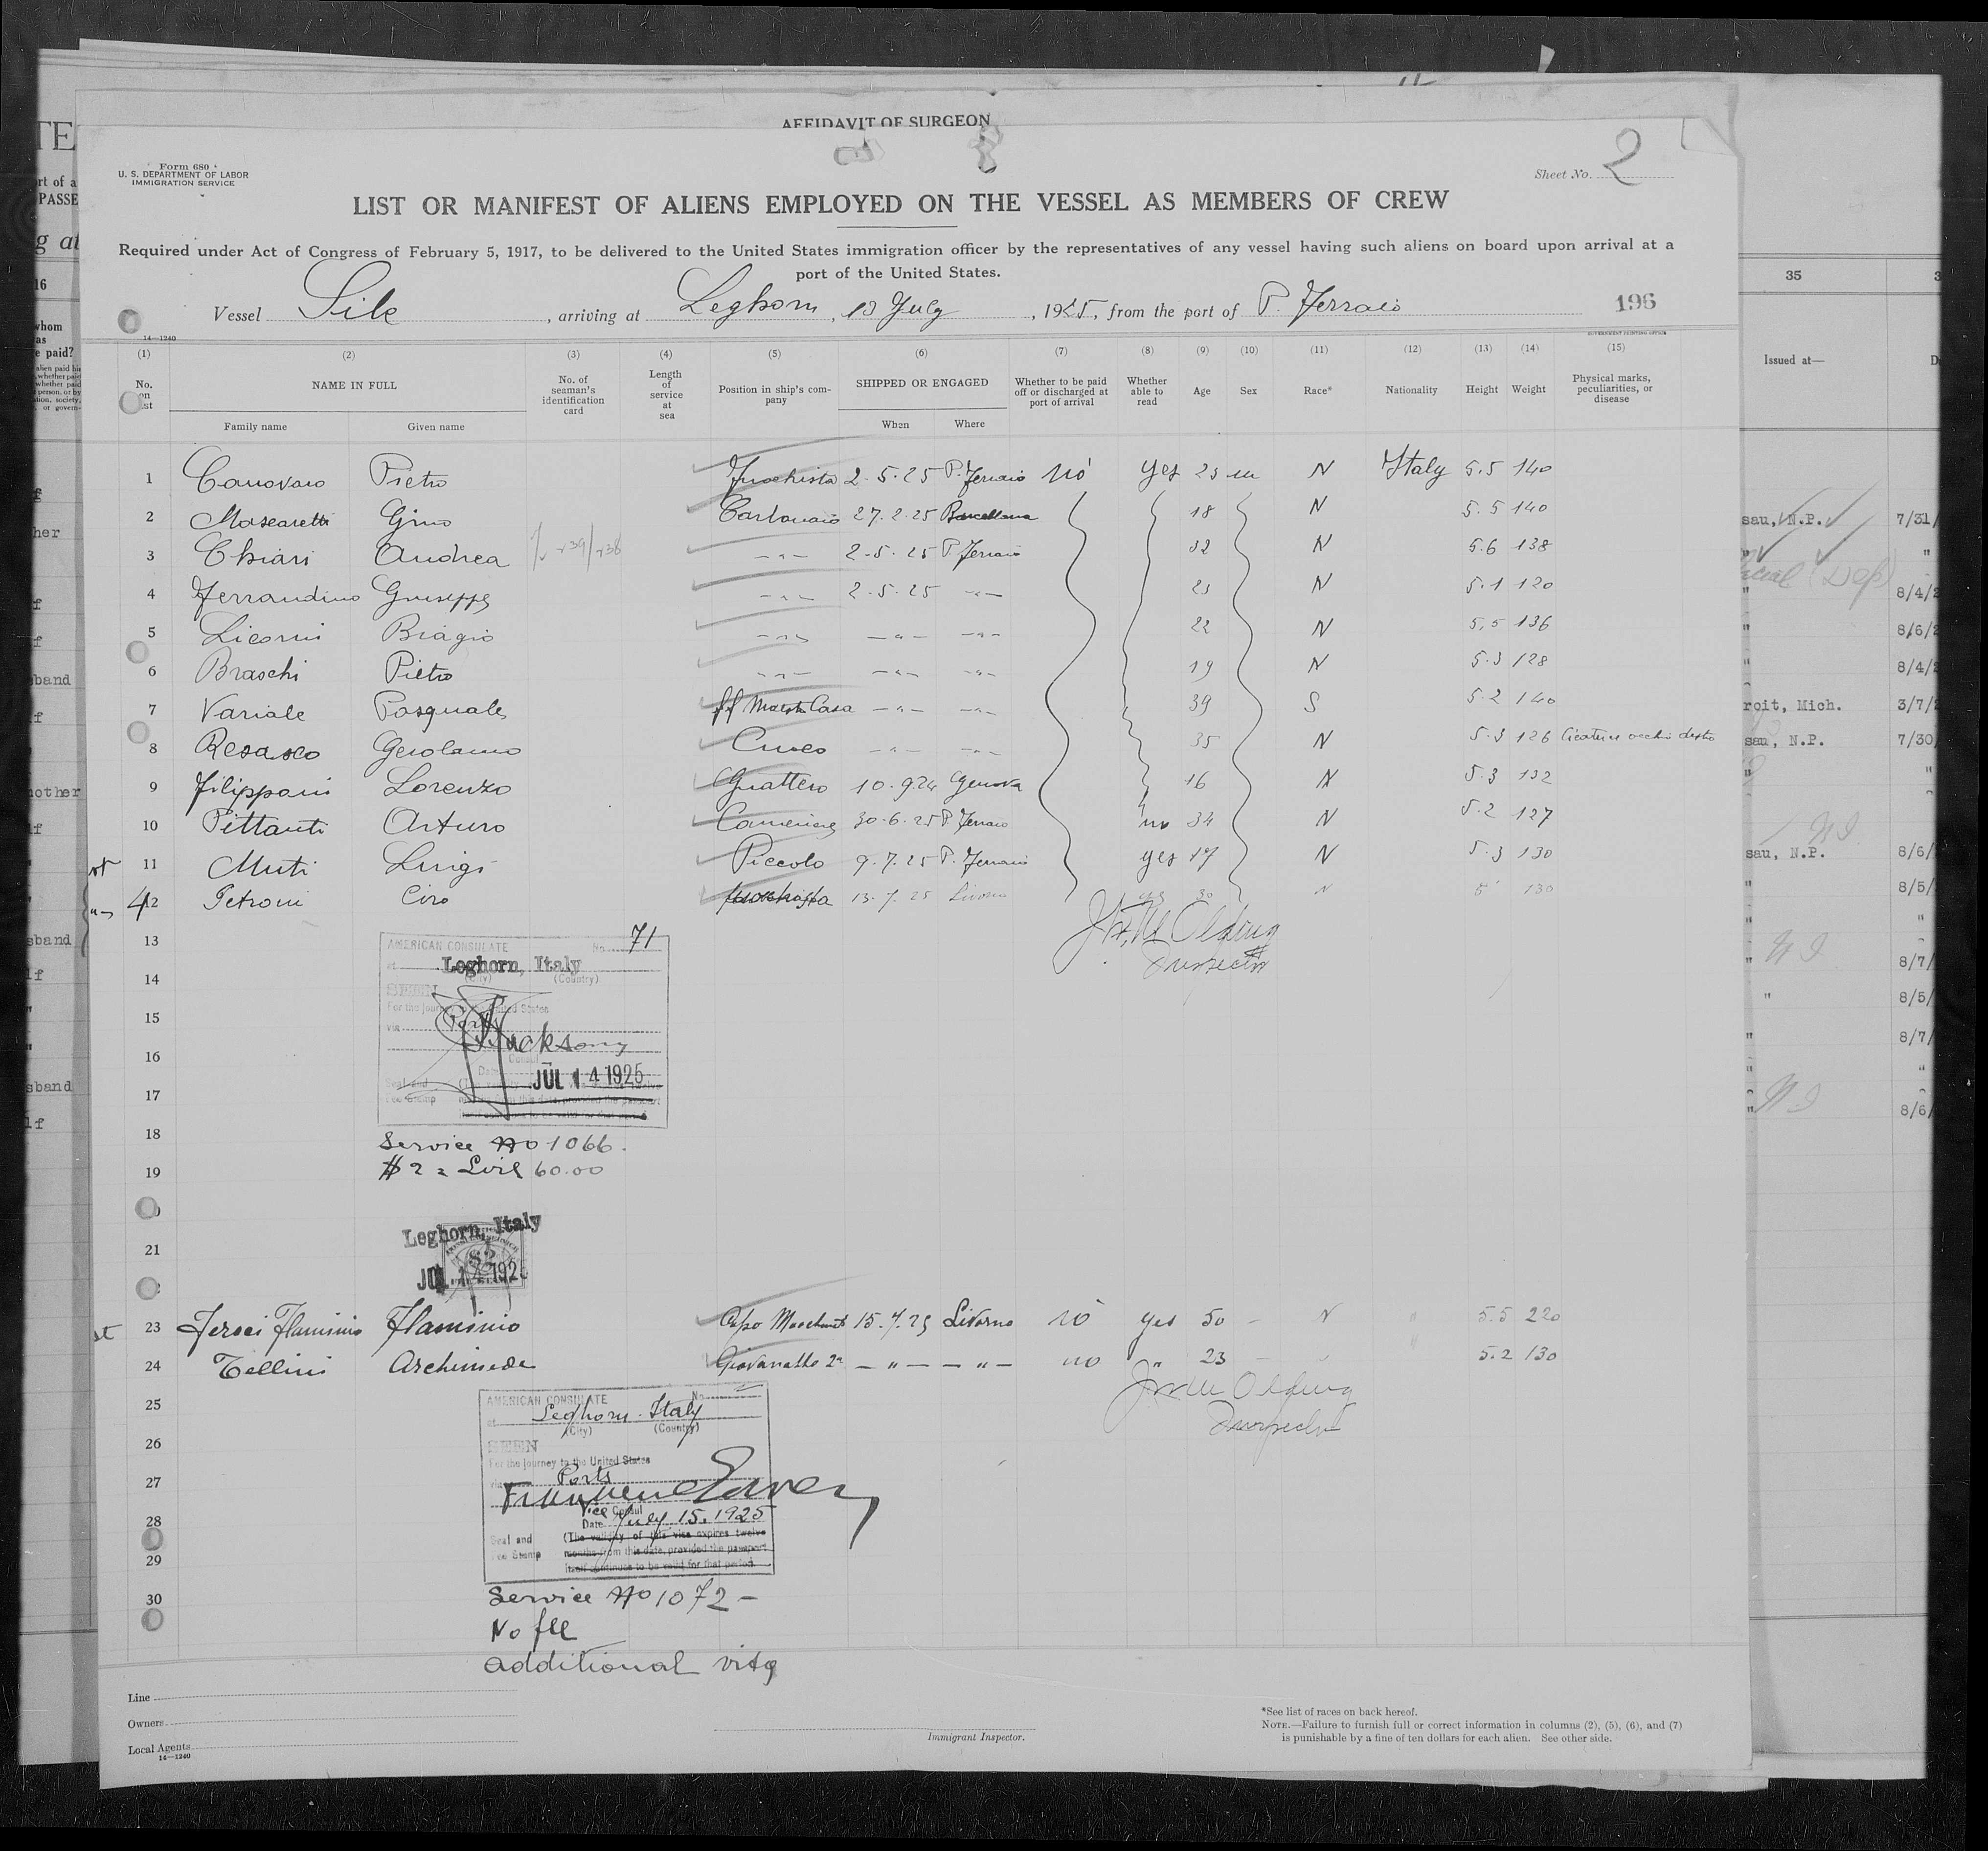 AFFIDAVIT OF SURGEON
Form 680
U. S. DEPARTMENT OF LABOR
IMMIGRATION SERVICE
Sheet No. 2
LIST OR MANIFEST OF ALIENS EMPLOYED ON THE VESSEL AS MEMBERS OF CREW
Required under Act of Congress of February 5, 1917, to be delivered to the United States immigration officer by the representatives of any vessel having such aliens on board upon arrival at a
port of the United States.
Vessel Sile, arriving at Leghorn, 13 July, 1925, from the port of P. Ferraio 196
14—1240
GOVERNMENT PRINTING OFFICE
(1) (2) (3) (4) (5) (6) (7) (8) (9) (10) (11) (12) (13) (14) (15)
No. on list NAME IN FULL No. of seaman's identification card Length of service at sea Position in ship's company SHIPPED OR ENGAGED Whether to be paid off or discharged at port of arrival Whether able to read Age Sex Race* Nationality Height Weight Physical marks, peculiarities, or disease
Family name Given name When Where
1 Canovaro Pietro Fuochista 2-5-25 P. Ferraio no yes 25 m N Italy 5.5 140
2 Mascaretti Gino Carbonaio 27.2.25 Barcellona 18 N 5.5 140
3 Chiari Andrea -"- 2-5-25 P. Ferraio 32 N 5.6 138
4 Ferrandino Giuseppe -"- 2-5-25 -"- 23 N 5.1 120
5 Licorni Biagio -"- -"- -"- 22 N 5.5 136
6 Braschi Pietro -"- -"- -"- 19 N 5.3 128
7 Variale Pasquale ff Maestro Casa -"- -"- 39 S 5.2 140
8 Resasco Gerolamo Cuoco -"- -"- 35 N 5.3 126 Cicatrice occhio destro
9 Filippani Lorenzo Guattero 10.9.24 Genova 16 N 5.3 132
10 Pittanti Arturo Cameriere 30-6-25 P. Ferraio no 34 N 5.2 127
11 Muti Luigi Piccolo 9.7.25 P. Ferraio yes 17 N 5.3 130
12 Petroni Ciro Fuochista 13.7.25 Livorno yes 30 N 5' 130
Olding
Inspector
13
AMERICAN CONSULATE No. 71
at Leghorn, Italy
(City) (Country)
14
SEEN
For the journey to the United States
15
via Ports
16
Jackson
Consul
Date JUL 14 1925
Seal and
Fee Stamp
17
18
Service No 1066.
$2 = Lire 60.00
19
Leghorn, Italy
21
JUL 14 1925
23 Flaminio Flaminio 15.7.25 Livorno no yes 50 - N " 5.5 220
24 Tellini Archimede Giovanotto 2a -"- -"- no " 23 5.2 130
Olding
Inspector
25
AMERICAN CONSULATE No.
at Leghorn. Italy
(City) (Country)
26
SEEN
For the journey to the United States
27
via Ports
Vice Consul
28
Date July 15. 1925
Seal and (The validity of this visa expires twelve
Fee Stamp months from this date, provided the passport
29
itself continues to be valid for that period.
30
Service No 1072 -
No fee
additional visa
Line
Owners
Local Agents
14—1240
Immigrant Inspector.
*See list of races on back hereof.
NOTE.—Failure to furnish full or correct information in columns (2), (5), (6), and (7)
is punishable by a fine of ten dollars for each alien. See other side.
35
Issued at—
sau, N.P. 7/31/
"
8/4/
8/6/
8/4/
roit, Mich. 3/7/
sau, N.P. 7/30
sau, N.P. 8/6/
8/5/
8/7/
8/5/
8/7/
8/6/